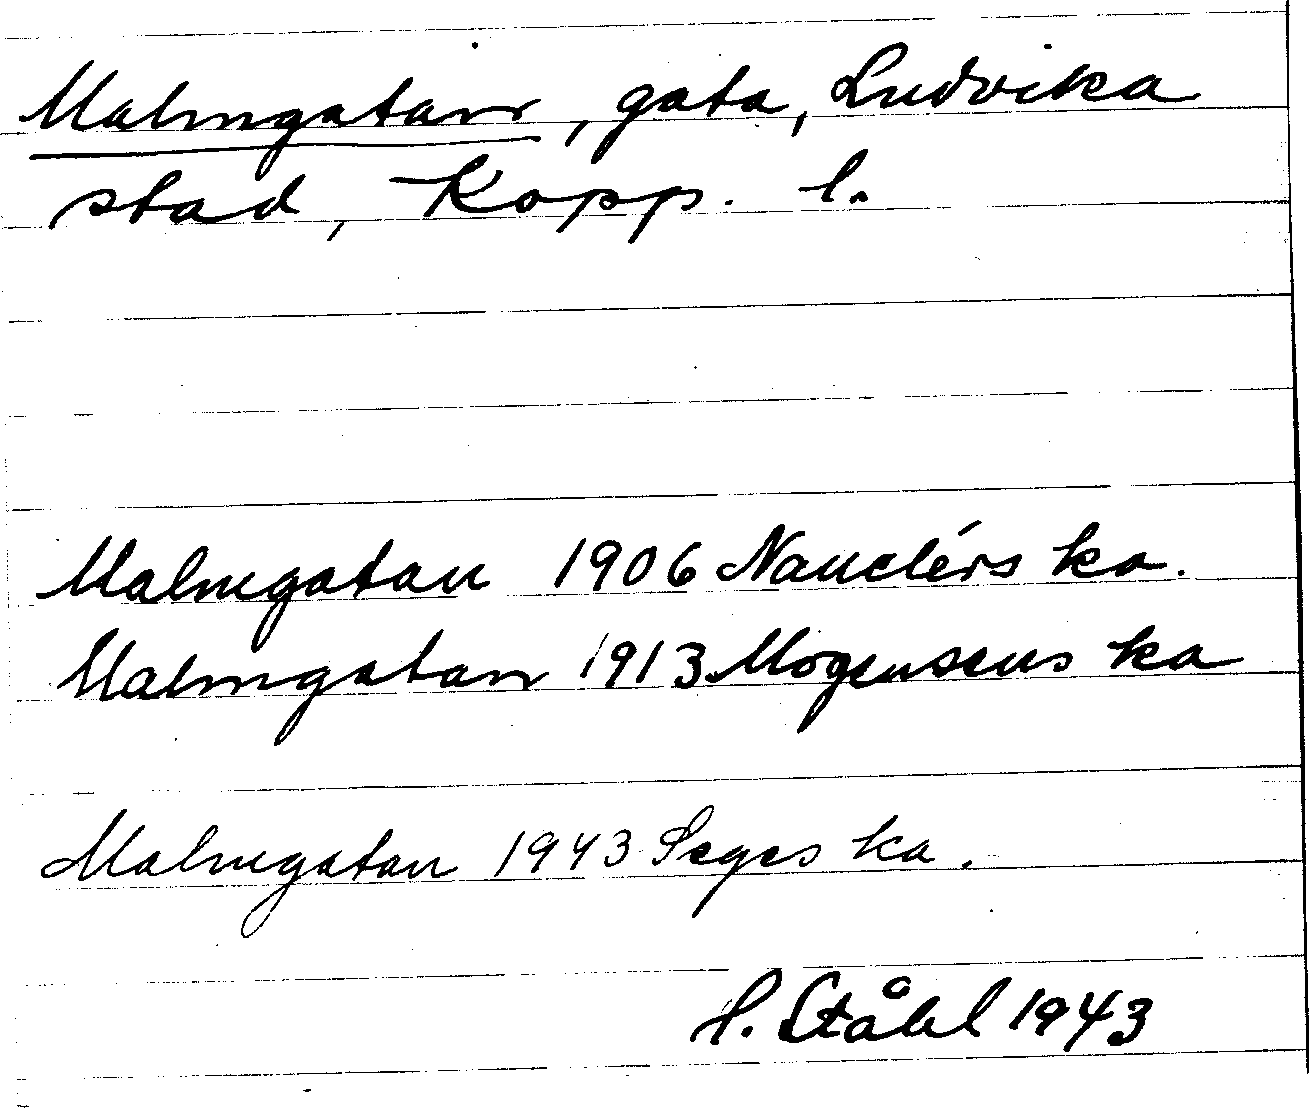 Malmgatan, gata, Ludvika
stad, Kopp. l.
Malmgatan 1906 Nauclérs ka.
Malmgatan 1913 Mogensens ka
Malmgatan 1943 Seges ka.
H. Ståhl 1943